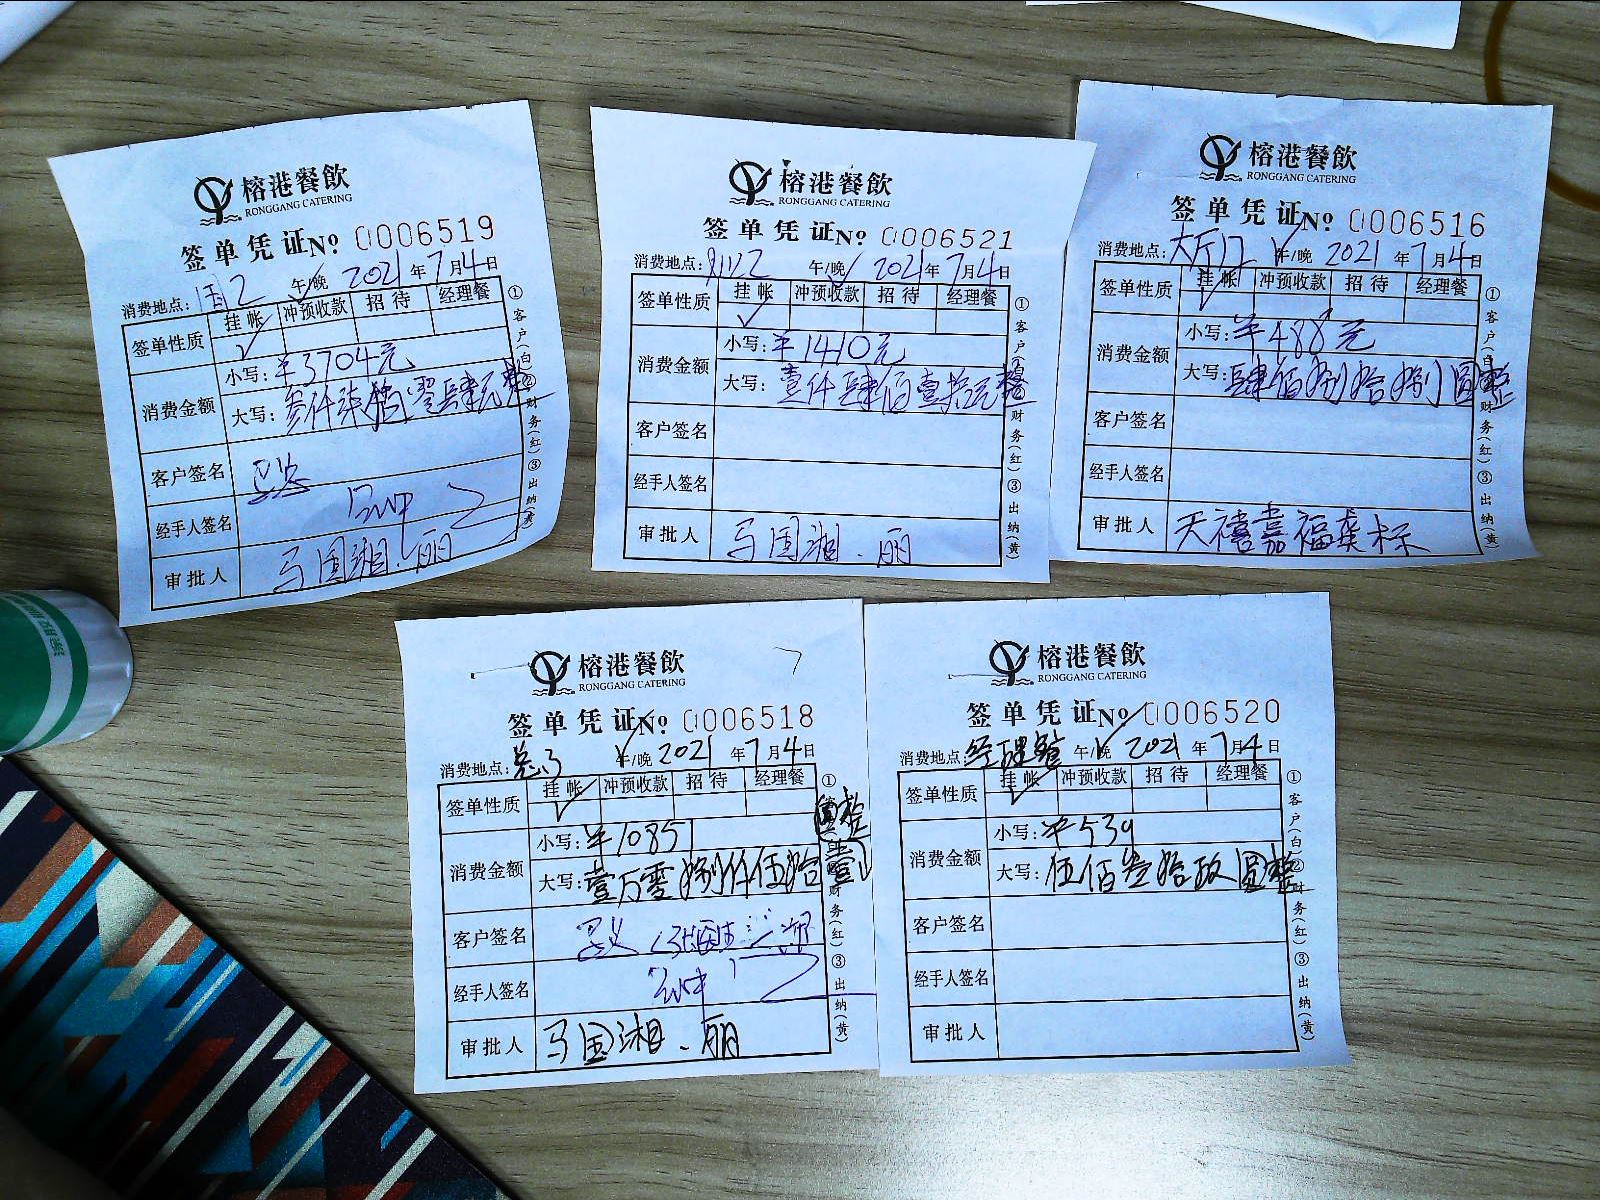 榕港餐飲
RONGGANG CATERING
签单凭证 № 0006519
消费地点: 国2 午/晚 2021年7月4日
签单性质 挂帐 冲预收款 招待 经理餐
消费金额 小写: ¥3704元
大写: 叁仟柒佰零肆元整
客户签名
经手人签名
审批人 马国湘.丽
①客户(白)②财务(红)③出纳(黄)
榕港餐飲
RONGGANG CATERING
签单凭证 № 0006521
消费地点: 午/晚 2021年7月4日
签单性质 挂帐 冲预收款 招待 经理餐
消费金额 小写: ¥1410元
大写: 壹仟肆佰壹拾元整
客户签名
经手人签名
审批人 马国湘.丽
①客户(白)②财务(红)③出纳(黄)
榕港餐飲
RONGGANG CATERING
签单凭证 № 0006516
消费地点: 大厅12 午/晚 2021年7月4日
签单性质 挂帐 冲预收款 招待 经理餐
消费金额 小写: ¥488元
大写: 肆佰捌拾捌圆整
客户签名
经手人签名
审批人 天禧嘉福龚标
①客户(白)②财务(红)③出纳(黄)
榕港餐飲
RONGGANG CATERING
签单凭证 № 0006518
消费地点: 午/晚 2021年7月4日
签单性质 挂帐 冲预收款 招待 经理餐
消费金额 小写: ¥10851
大写: 壹万零捌仟伍拾壹
圆整
客户签名
经手人签名
审批人 马国湘.丽
①客户(白)②财务(红)③出纳(黄)
榕港餐飲
RONGGANG CATERING
签单凭证 № 0006520
消费地点: 经理餐 午/晚 2021年7月4日
签单性质 挂帐 冲预收款 招待 经理餐
消费金额 小写: ¥539
大写: 伍佰叁拾玖圆整
客户签名
经手人签名
审批人
①客户(白)②财务(红)③出纳(黄)